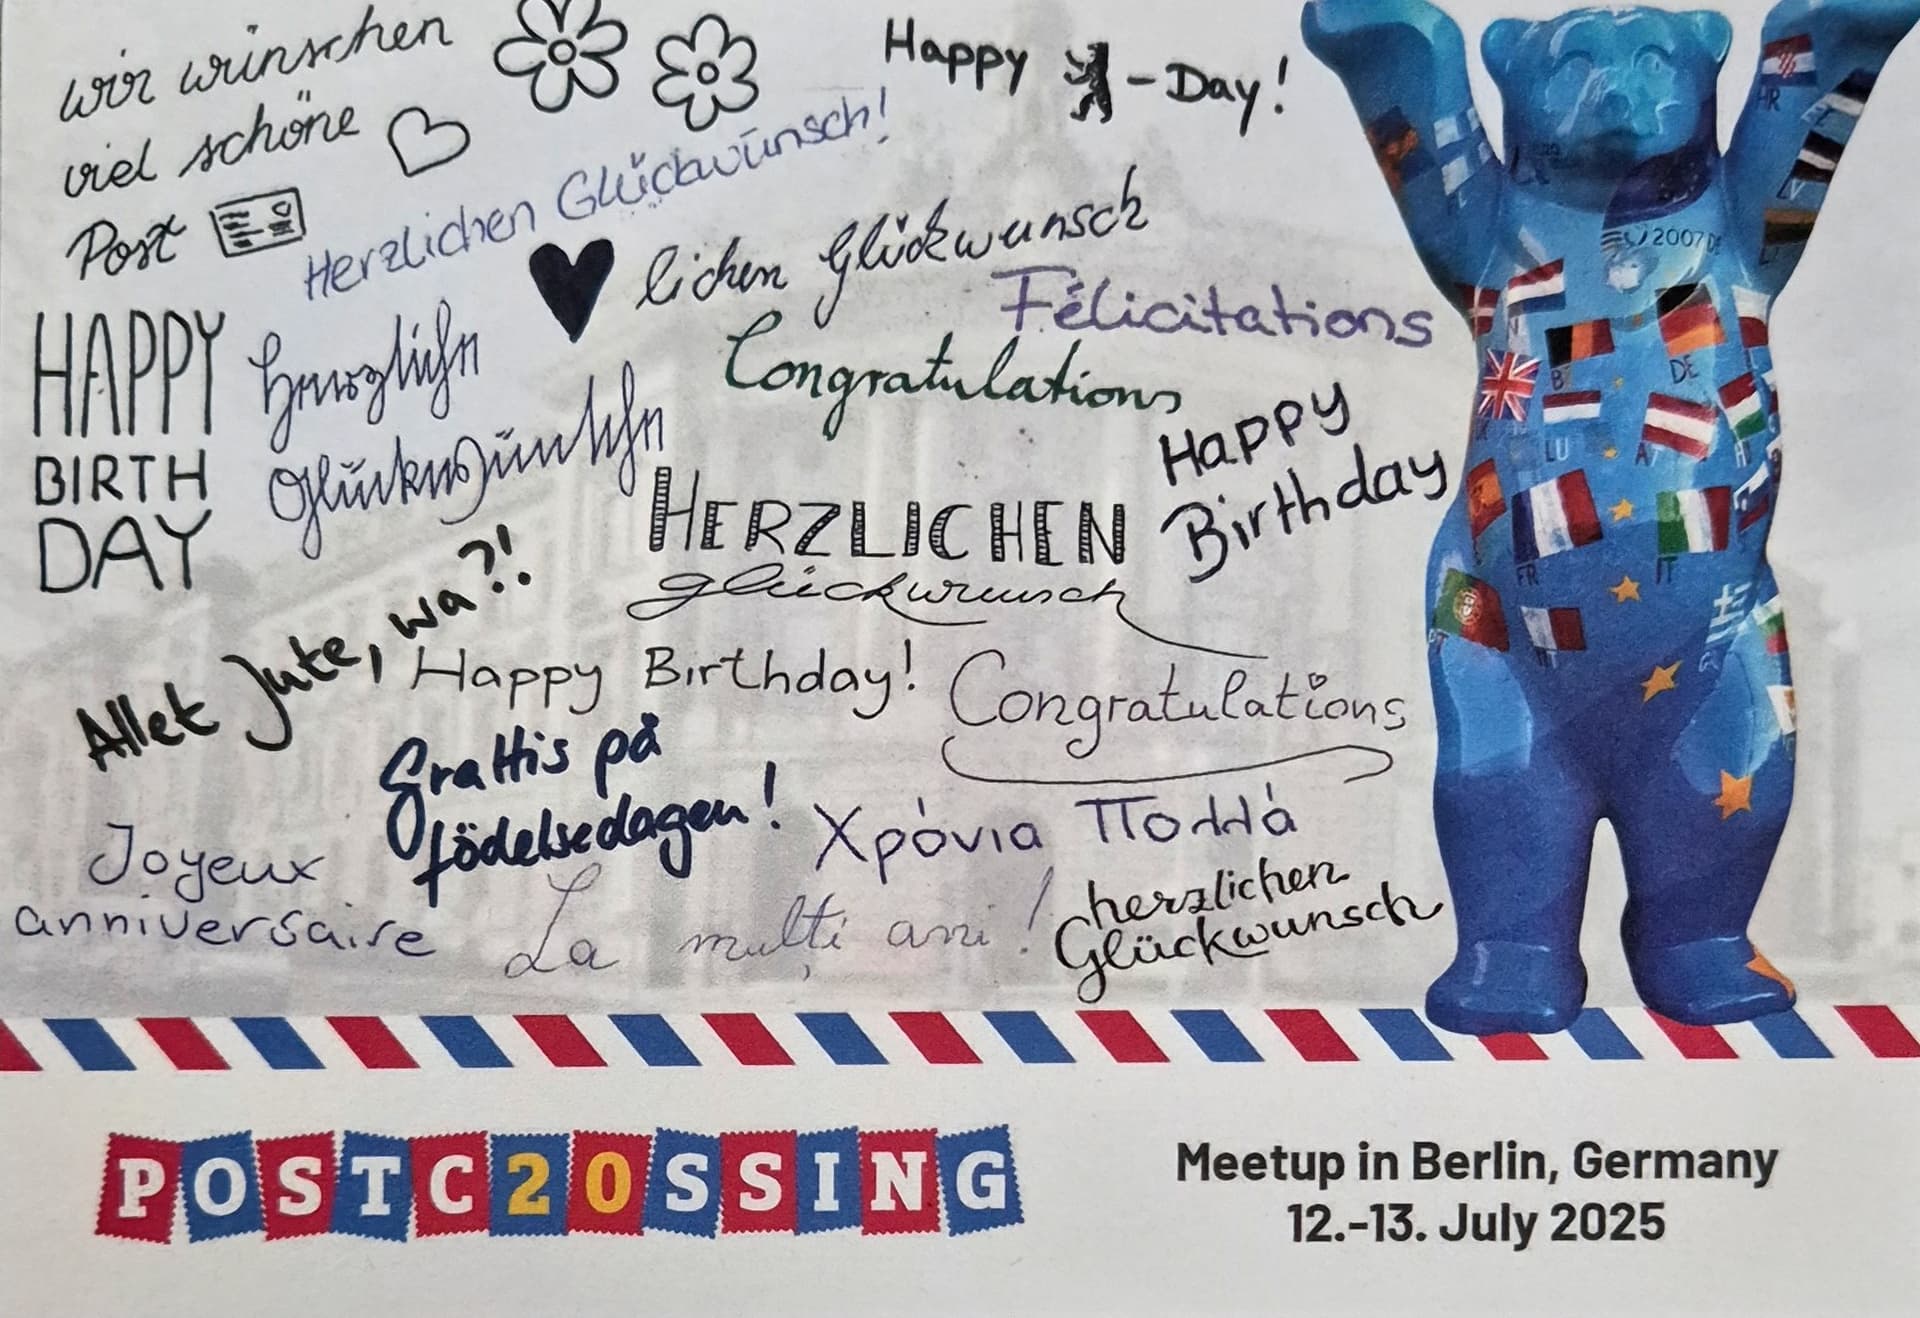 wir wünschen
viel schöne
Post
Happy -Day!
Herzlichen Glückwünsch!
lichen Glückwunsch
Félicitations
HAPPY
BIRTH
DAY
Herzlichen
Glückwünsche
Congratulations
Happy
Birthday
HERZLICHEN
glückwunsch
Allet Jute, wa?!
Happy Birthday!
Congratulations
Grattis på
födelsedagen!
Χρόνια Πολλά
Joyeux
anniversaire
La mulți ani!
herzlichen
Glückwunsch
HR
2007 DE
B
DE
LU
A
FR
IT
PT
POSTC20SSING
Meetup in Berlin, Germany
12.-13. July 2025